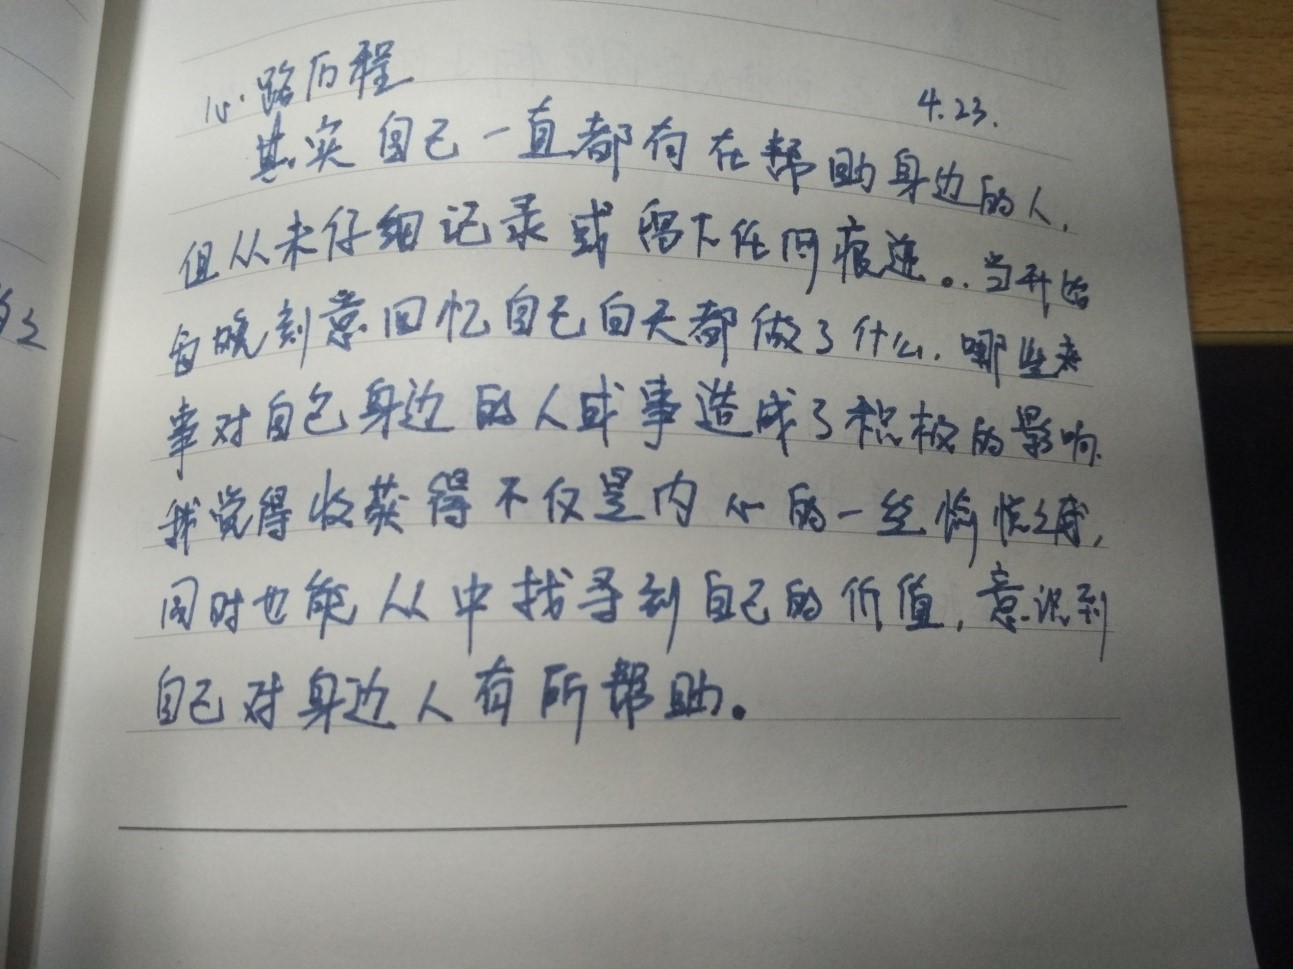 心路历程
4.23.
其实自己一直都有在帮助身边的人,
但从未仔细记录或留下任何痕迹。当开始
每晚刻意回忆自己白天都做了什么,哪些
事对自己身边的人或事造成了积极的影响.
我觉得收获得不仅是内心的一丝愉悦
同时也能从中找寻到自己的价值,意识到
自己对身边人有所帮助。